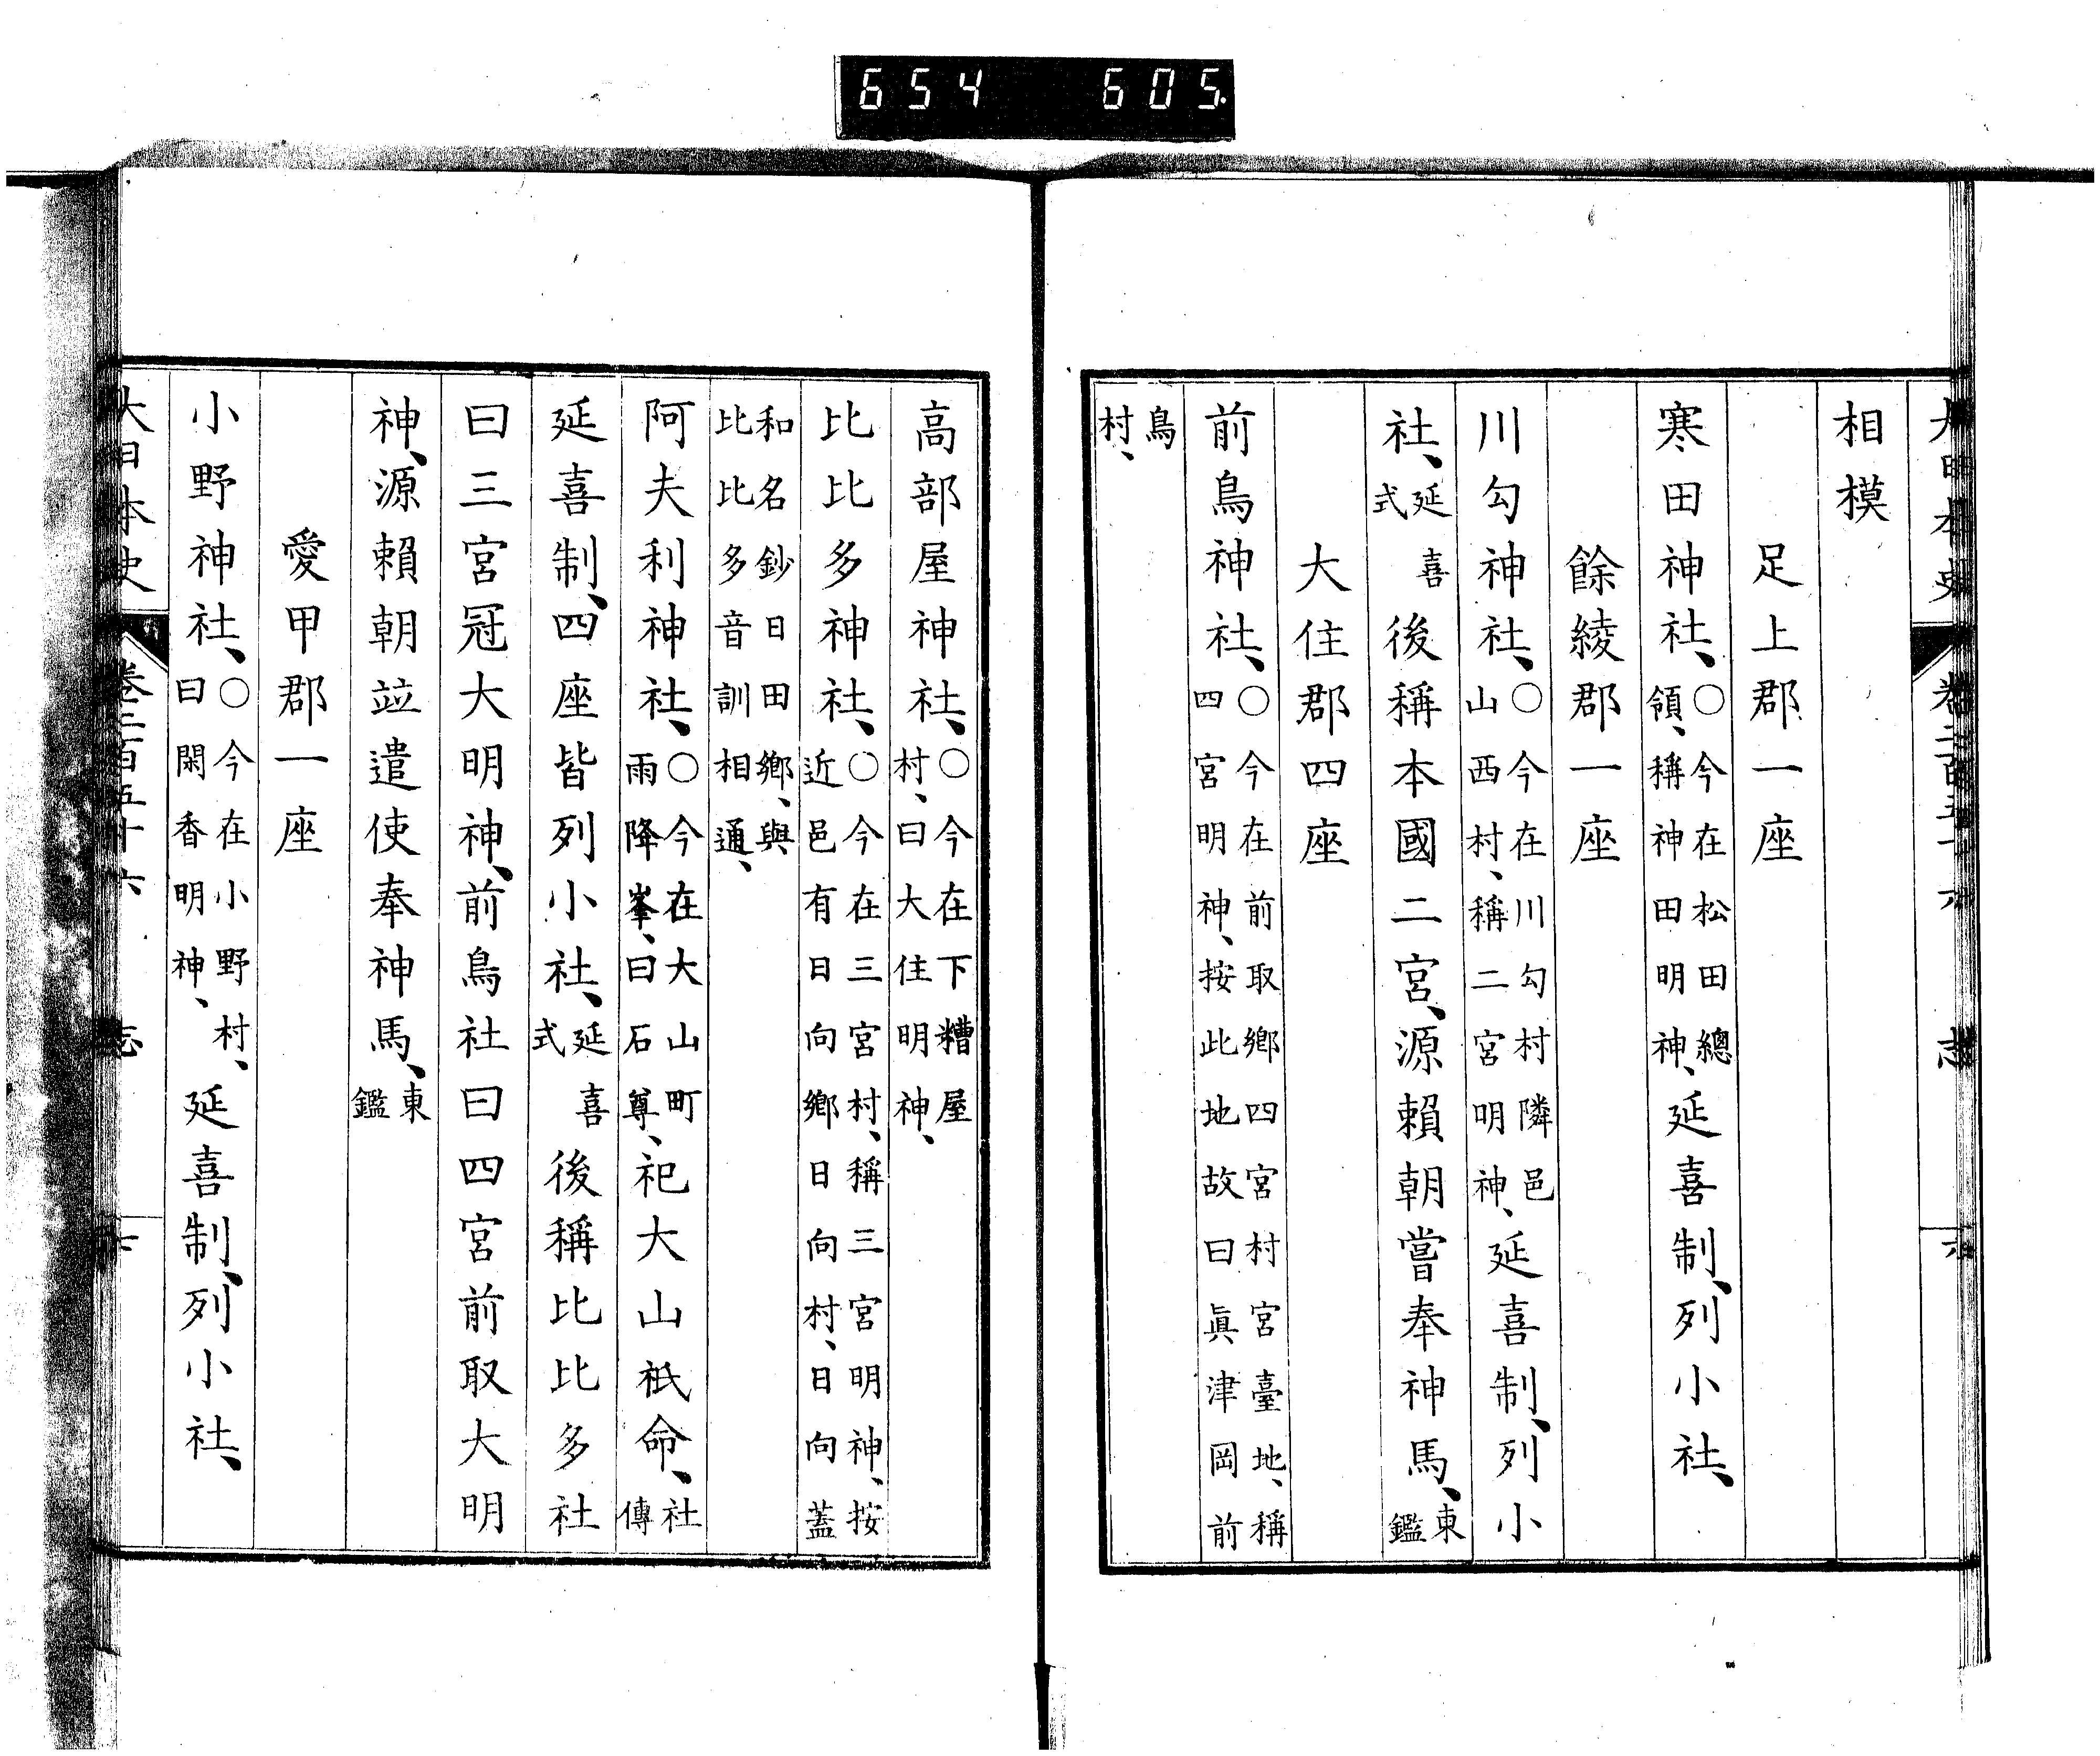 654 605
相模
足上郡一座
寒田神社、○今在松田總領、稱神田明神、延喜制、列小社、
餘綾郡一座
川勾神社、○今在川勾村隣邑山西村、稱二宮明神、延喜制、列小
社、延喜式後稱本國二宮、源賴朝嘗奉神馬、東鑑
大住郡四座
前鳥神社、○今在前取鄉四宮村宮臺地、稱四宮明神、按此地故曰眞津岡前
鳥村、
高部屋神社、○今在下糟屋村、曰大住明神、
比比多神社、○今在三宮村、稱三宮明神、按近邑有日向鄉日向村、日向蓋
和名鈔日田鄉、與比比多音訓相通、
阿夫利神社、○今在大山町雨降峯、曰石尊、祀大山祇命、社傳
延喜制、四座皆列小社、延喜式後稱比比多社
曰三宮冠大明神、前鳥社曰四宮前取大明
神、源賴朝竝遣使奉神馬、東鑑
愛甲郡一座
小野神社、○今在小野村、曰閑香明神、延喜制、列小社、
大日本史 卷二百五十六 志